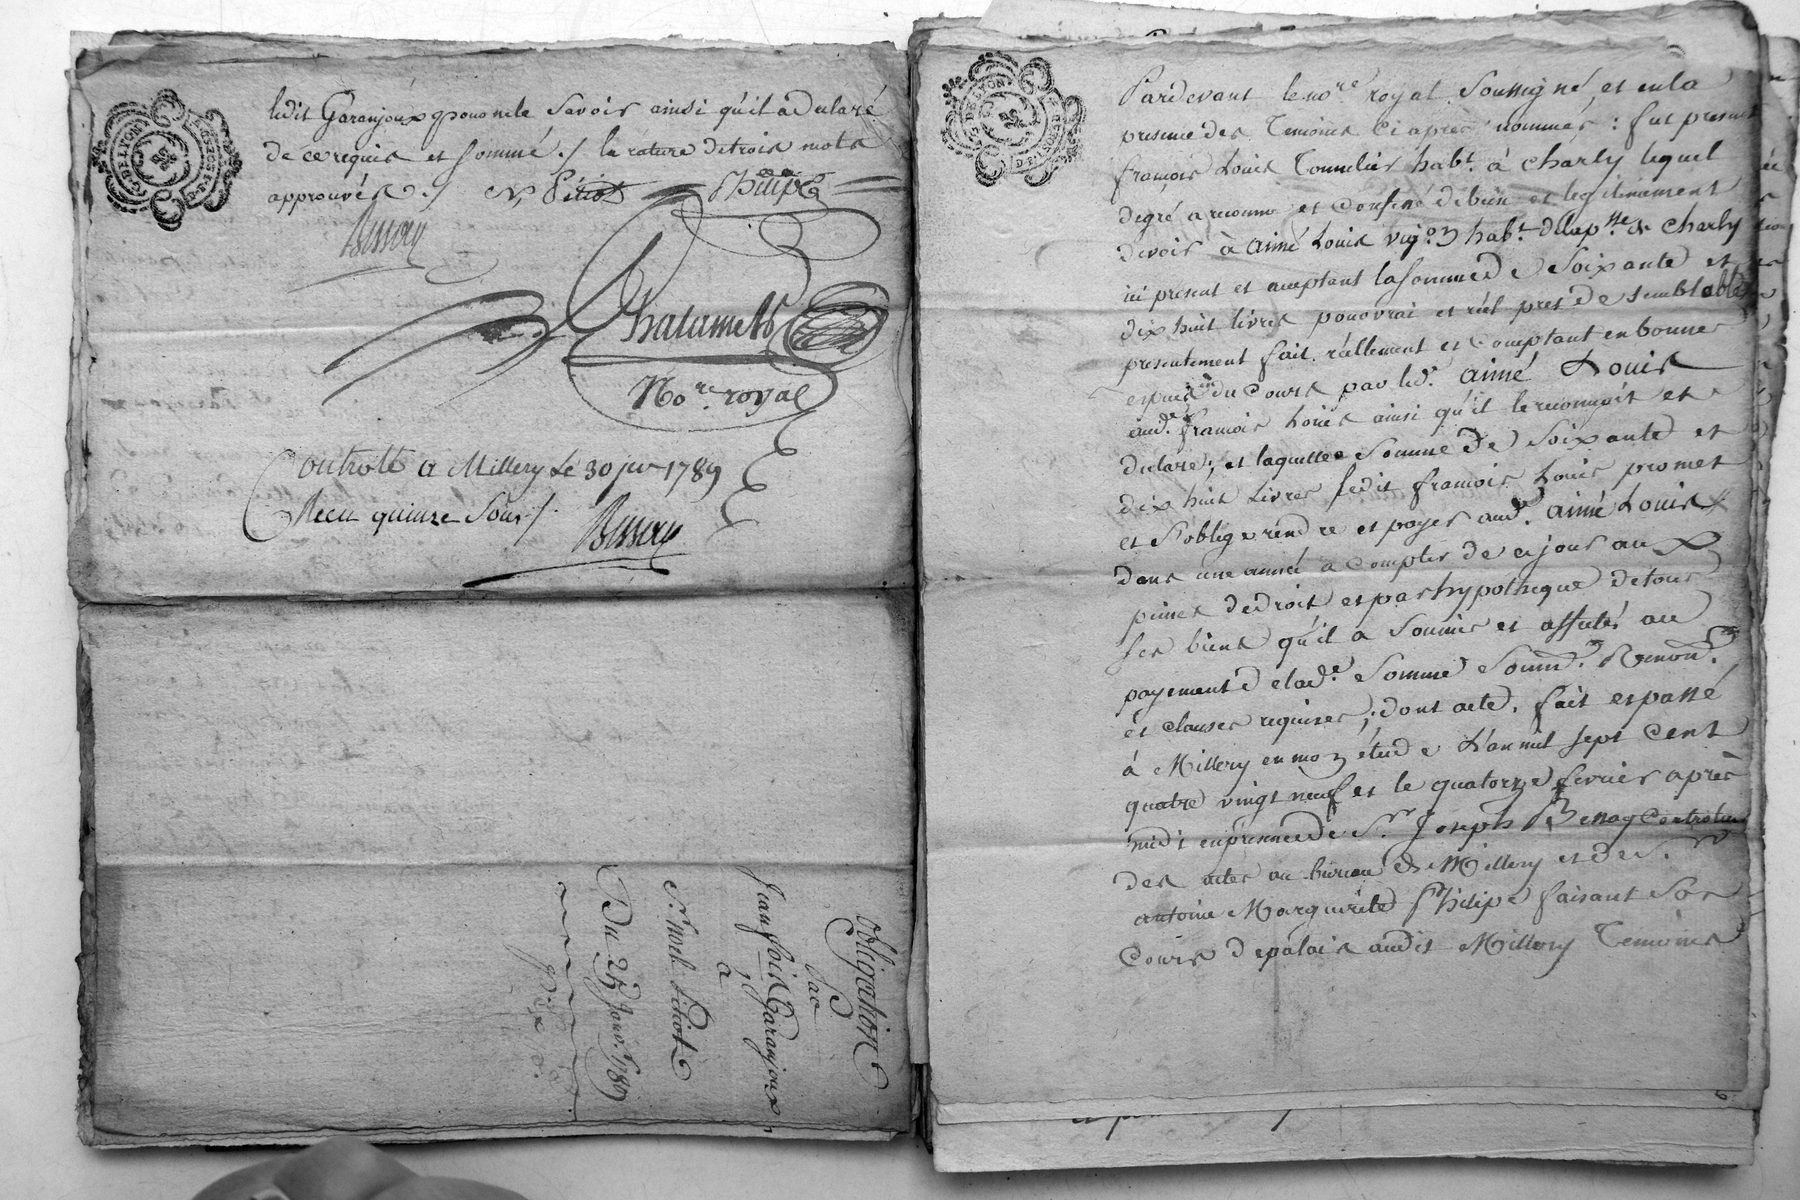 ledit Garanjoux pour ne le savoir ainsi qu'il a declaré
de ce requis et sommé ./. la rature de trois mots
approuvés ./. N, Pitiot Philipe
Bessay
Chalumel
No.re royal
Controllé a Millery le 30 jer 1789
Recu quinze Sous /.
Bessay
Obligation
par
Jean fois Garanjoux
à
Sr. Noel Pitiot
Du 25 Janv. 1789
G. DE LYON
Pardevant le nore royal soussigné et en la
presence des temoins ci apres nommés : fut present
françois Louis Tonnelier habt. à Charly lequel
degré a reconnu et confessé debien et legitimement
devoir à aimé Louis vigon habt. de la psse de Charly
ici present et acceptant la somme de soixante et
dix huit livres pour vrai et réel pret de semblable
presentement fait réellement et comptant en bonnes
especes du cours par led. aimé Louis
aud. françois Louis ainsi qu'il le reconnoit et
declare ; et laquelle somme de soixante et
dix huit Livres ledit françois Louis promet
et s'oblige rendre et payer aud. aimé Louis
dans une année a compter de ce jour aux
peines de droit et par hypotheque de tous
ses biens qu'il a soumis et affectés au
payement de lad.e somme soumd. Renond.
et clauses requises ; dont acte, fait et passé
à Millery en mon étude L'an mil sept cent
quatre vingt neuf et le quatorze fevrier après
midi en presence de Sr. Joseph Bessay Controleur
des actes au bureau de Millery et de Sr.
antoine Marguerite Philipe faisant son
Cours de palais audit Millery Temoins